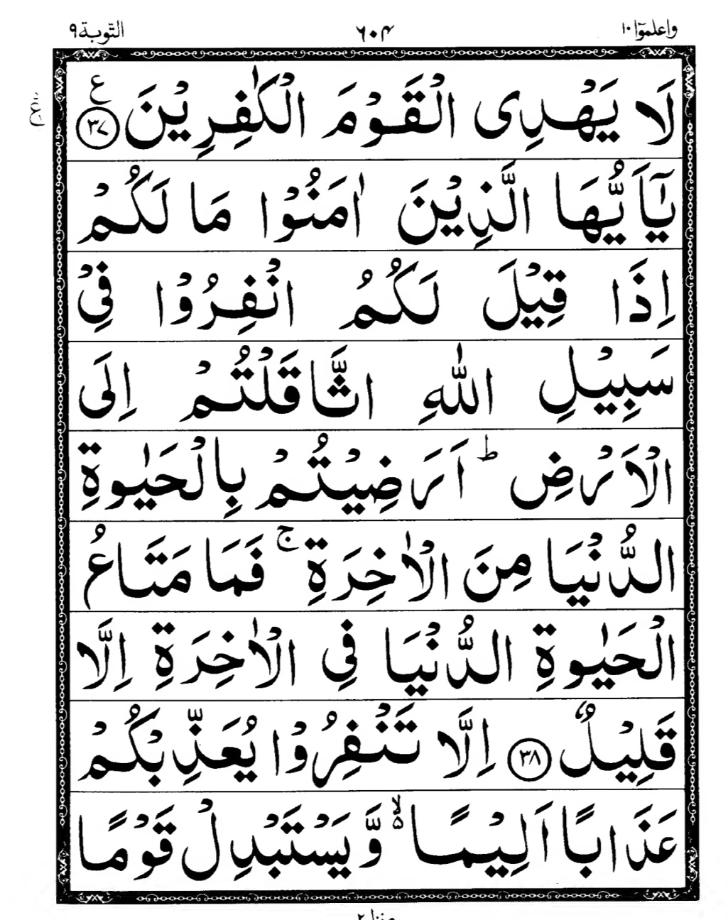 واعلموٓا ١٠ ٦٠٤ التوبة ٩
لَا يَهْدِى الْقَوْمَ الْكٰفِرِيْنَ ﴿٣٧﴾ ع
يٰۤاَيُّهَا الَّذِيْنَ اٰمَنُوْا مَا لَكُمْ
اِذَا قِيْلَ لَكُمُ انْفِرُوْا فِيْ
سَبِيْلِ اللّٰهِ اثَّاقَلْتُمْ اِلَى
الْاَرْضِ ؕ اَرَضِيْتُمْ بِالْحَيٰوةِ
الدُّنْيَا مِنَ الْاٰخِرَةِ ۚ فَمَا مَتَاعُ
الْحَيٰوةِ الدُّنْيَا فِي الْاٰخِرَةِ اِلَّا
قَلِيْلٌ ﴿٣٨﴾ اِلَّا تَنْفِرُوْا يُعَذِّبْكُمْ
عَذَابًا اَلِيْمًا ۙ۵ وَّيَسْتَبْدِلْ قَوْمًا